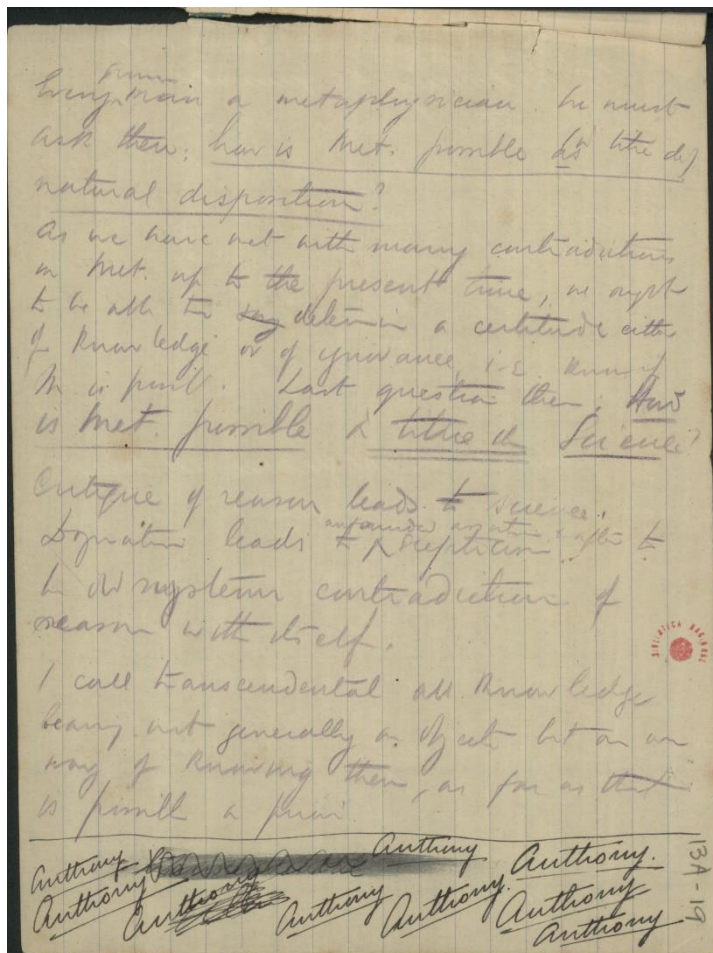 Every man a metaphysician. he must
ask then: how is Met. possible as (à titre de)
natural disposition?
As we have met with many contradictions
in Met. up to the present time, we ought
to be able to determin a certitude either
of Knowledge or of ignorance, i.e. know if
M. is possib. Last question then. How
is Met. possible à titre de Science?
Critique of reason leads to science.
Dogmatism leads to scepticism
to the old system contradiction of
reason with itself.
I call transcendental all Knowledge
bearing not generally on objects but on our
way of Knowing them, as far as that
is possible a priori
BIBLIOTECA NACIONAL
13A-19
Anthony Anthony
Anthony Anthony Anthony.
Anthony Anthony. Anthony
Anthony